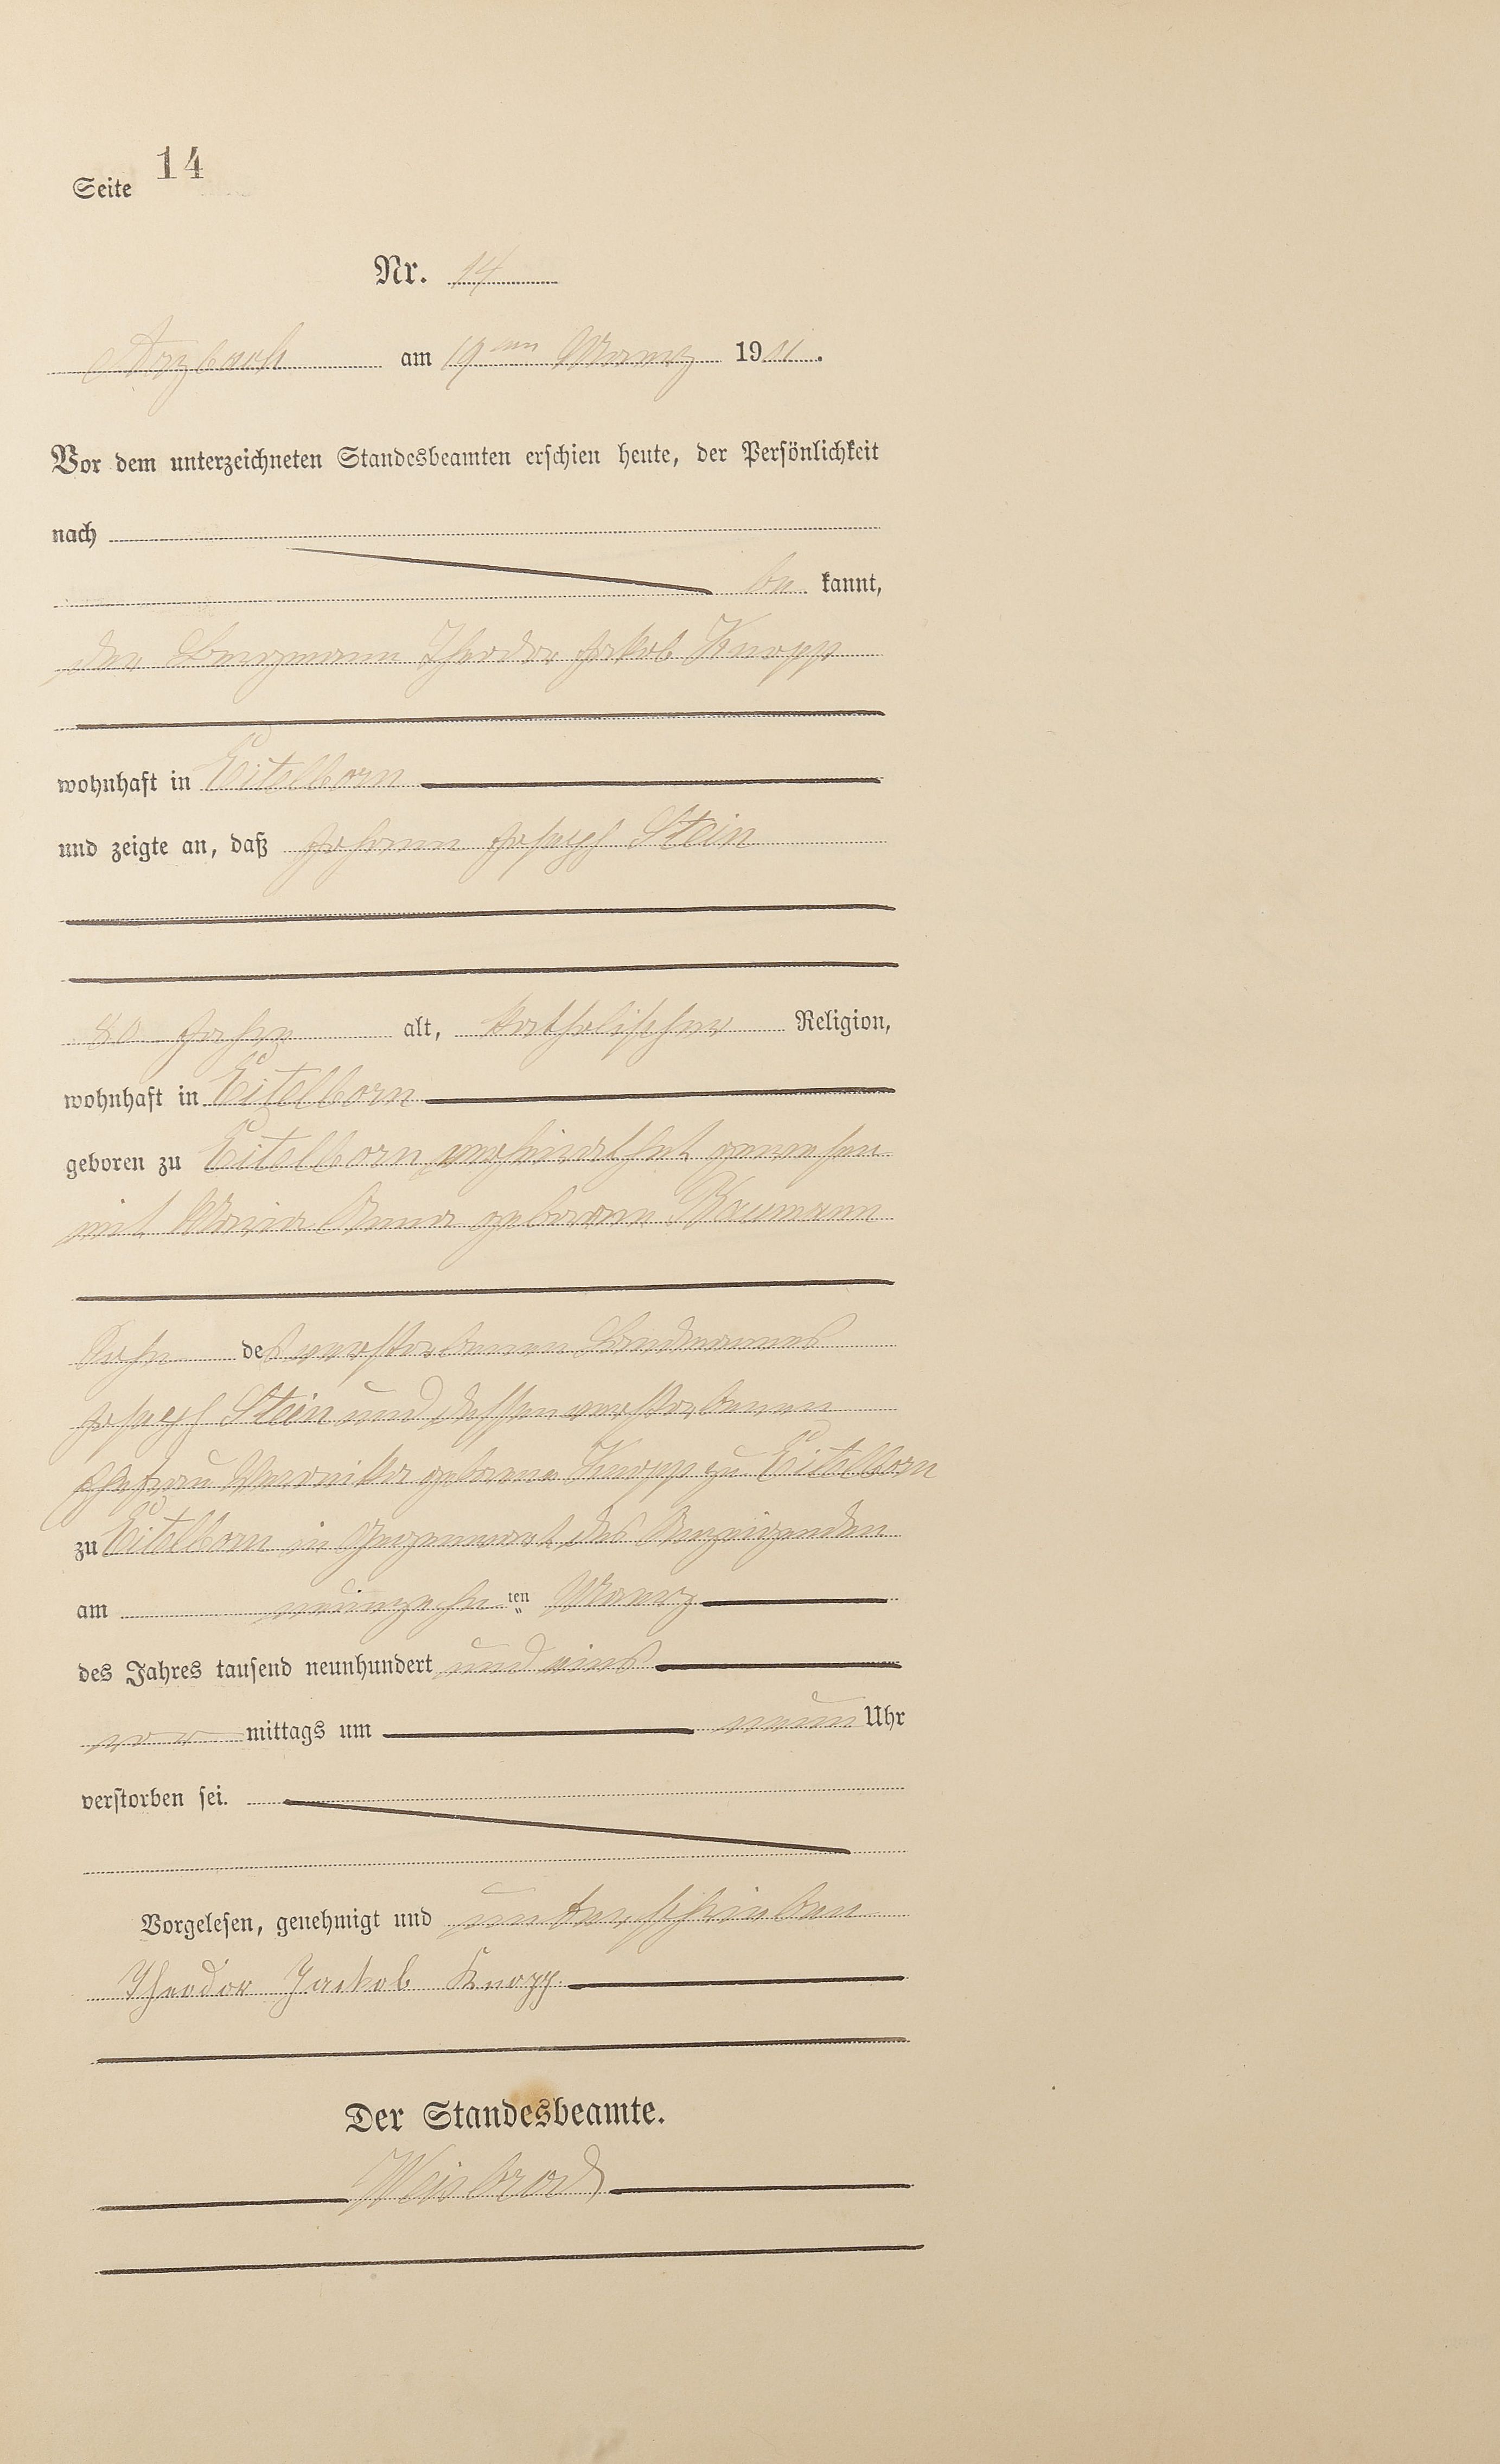 Seite 14
Nr. 14
Arzbach am 19ten Maerz 1901.
Vor dem unterzeichneten Standesbeamten erschien heute, der Persönlichkeit
nach
be kannt,
der Bergmann Theodor Jakob Knopp
wohnhaft in Eitelborn
und zeigte an, daß Johann Joseph Stein
80 Jahre alt, katholischer Religion,
wohnhaft in Eitelborn
geboren zu Eitelborn verheirathet gewesen
mit Maria Anna geborene Naumann
Sohn des verstorbenen Landmannes
Joseph Stein und dessen verstorbenen
Ehefrau Veronika geborene Knopp zu Eitelborn
zu Eitelborn in Gegenwart des Anzeigenden
am neunzehn ten Maerz
des Jahres tausend neunhundert und eins
vor mittags um neun Uhr
verstorben sei.
Vorgelesen, genehmigt und unterschrieben
Theodor Jackob Knopp
Der Standesbeamte.
Weisbrod